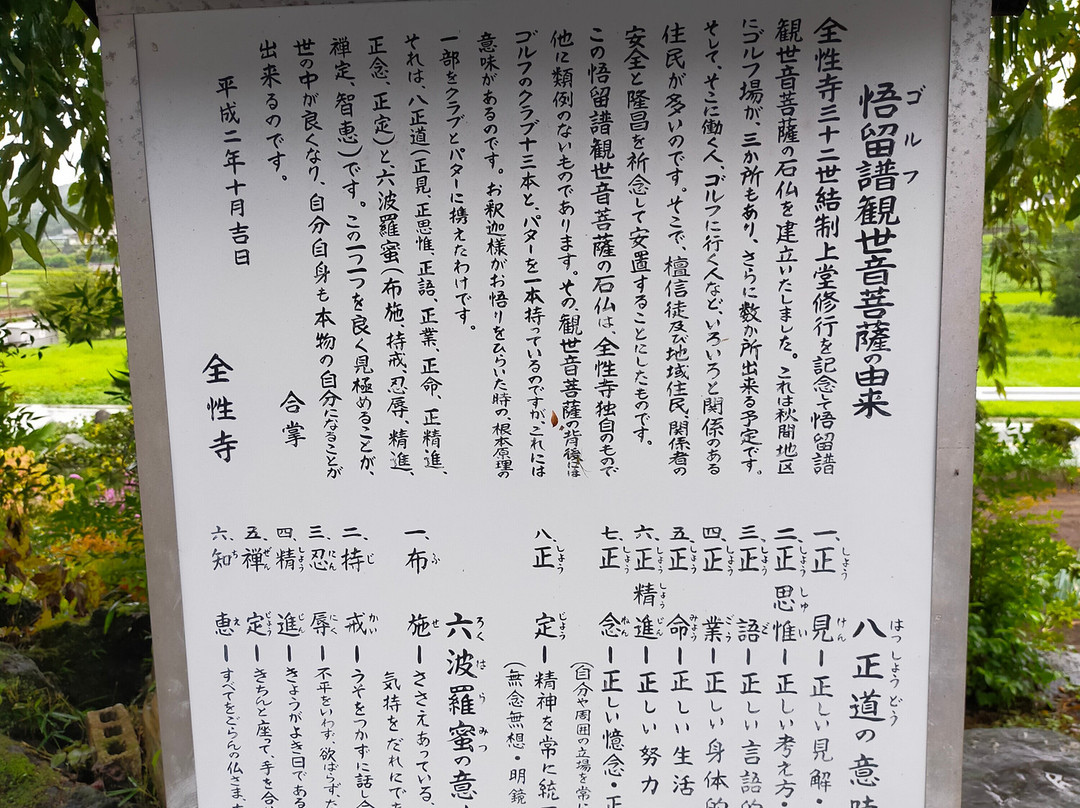 ゴルフ
悟留譜観世音菩薩の由来
全性寺三十二世結制上堂修行を記念して悟留譜
観世音菩薩の石仏を建立いたしました。これは秋間地区
にゴルフ場が、三か所もあり、さらに数か所出来る予定です。
そして、そこに働く人、ゴルフに行く人など、いろいろと関係のある
住民が多いのです。そこで、檀信徒及び地域住民、関係者の
安全と隆昌を祈念して安置することにしたものです。
この悟留譜観世音菩薩の石仏は、全性寺独自のもので
他に類例のないものであります。その観世音菩薩の背後には
ゴルフのクラブ十三本と、パターを一本持っているのですが、これには
意味があるのです。お釈迦様がお悟りをひらいた時の、根本原理の
一部をクラブとパターに携えたわけです。
それは、八正道(正見、正思惟、正語、正業、正命、正精進、
正念、正定)と、六波羅蜜(布施、持戒、忍辱、精進、
禅定、智恵)です。この一つ一つを良く見極めることが、
世の中が良くなり、自分自身も本物の自分になることが
出来るのです。
合掌
平成二年十月吉日
全性寺
はっしょうどう
八正道の意味
しょうけん
一、正見ー正しい見解・
しょうしゅい
二、正思惟ー正しい考え方・
しょうご
三、正語ー正しい言語的
しょうごう
四、正業ー正しい身体的
しょうみょう
五、正命ー正しい生活
しょうしょうじん
六、正精進ー正しい努力
しょうねん
七、正念ー正しい憶念・正
(自分や周囲の立場を常に
しょうじょう
八、正定ー精神を常に統一
(無念無想・明鏡
ろくはらみつ
六波羅蜜の意
ふせ
一、布施ーささえあっている、
気持をだれにでも
じかい
二、持戒ーうそをつかずに話し合
にんにく
三、忍辱ー不平をいわず、欲ばらず、た
しょうじん
四、精進ーきょうがよき日である
ぜんじょう
五、禅定ーきちんと座って、手を合
ちえ
六、知恵ーすべてをごらんの仏さま、